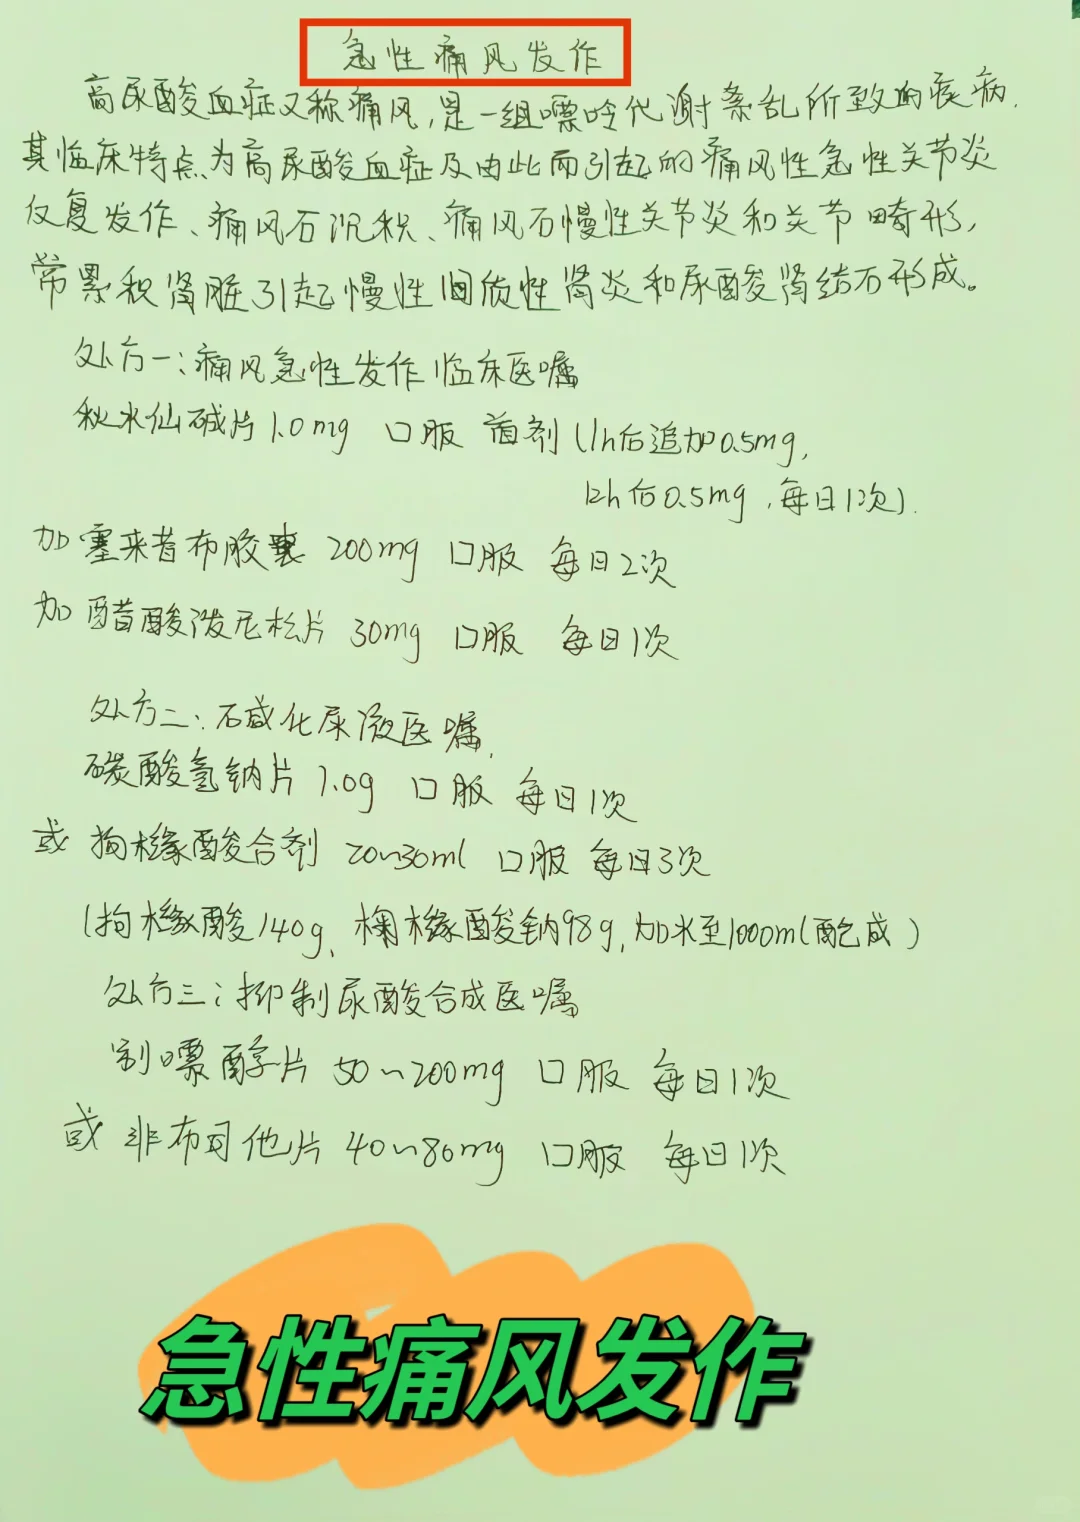 急性痛风发作
高尿酸血症又称痛风,是一组嘌呤代谢紊乱所致的疾病.
其临床特点为高尿酸血症及由此而引起的痛风性急性关节炎
反复发作、痛风石沉积、痛风石慢性关节炎和关节畸形,
常累积肾脏引起慢性间质性肾炎和尿酸肾结石形成。
处方一:痛风急性发作临床医嘱
秋水仙碱片 1.0mg 口服 首剂(1h后追加0.5mg,
12h后0.5mg,每日1次).
加 塞来昔布胶囊 200mg 口服 每日2次
加 醋酸泼尼松片 30mg 口服 每日1次
处方二:碱化尿液医嘱.
碳酸氢钠片 1.0g 口服 每日1次
或 枸橼酸合剂 20~30ml 口服 每日3次
(枸橼酸140g、枸橼酸钠98g,加水至1000ml配成)
处方三:抑制尿酸合成医嘱
别嘌醇片 50~200mg 口服 每日1次
或 非布司他片 40~80mg 口服 每日1次
急性痛风发作